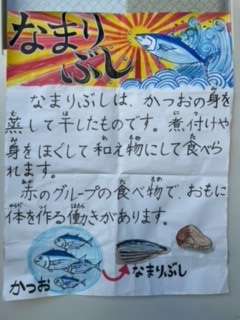 なまり
ぶし
なまりぶしは、かつおの身を
蒸して干したものです。煮付けや
身をほぐして和え物にして食べら
れます。
赤のグループの食べ物で、おもに
体を作る働きがあります。
かつお
なまりぶし